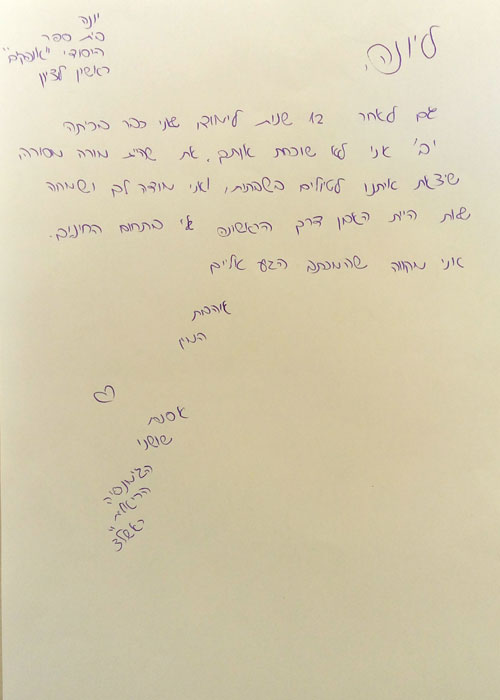 יונה
בית ספר
היסודי "אופקים"
ראשון לציון
ליונה,
גם לאחר 12 שנות לימוד, שאני כבר בכיתה
יב' אני לא שוכחת אותך. את שהיית מורה מסורה,
שיצאת איתנו לטיולים בשבתות, ואני מודה לך ושמחה
שאת היית האמן דרך הראשונה לי בתחום החינוך.
אני מקווה שהמכתב הגיע אליך
אוהבת
המון
אסנת
שושני
הגימנסיה
הריאלית
ראשל"צ